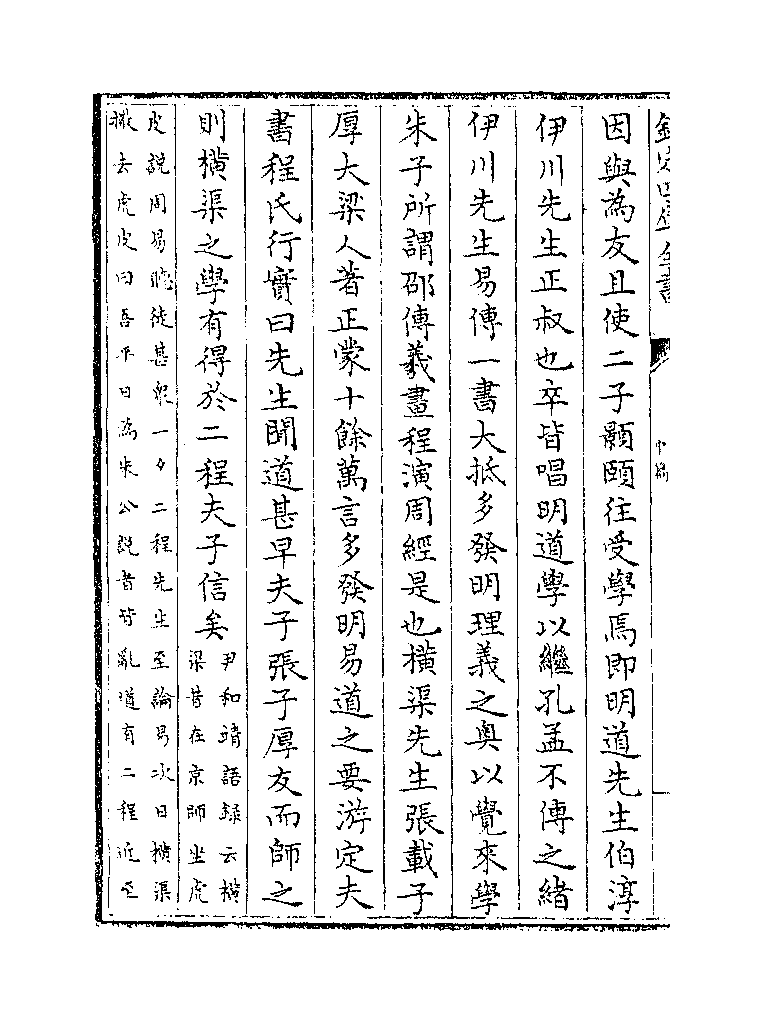 因與為友且使二子顥頤往受學焉即明道先生伯淳
伊川先生正叔也卒皆唱明道學以繼孔孟不傳之緒
伊川先生易傳一書大抵多發明理義之奥以覺來學
朱子所謂邵傳羲畫程演周經是也橫渠先生張載子
厚大梁人著正蒙十餘萬言多發明易道之要游定夫
書程氏行實曰先生聞道甚早夫子張子厚友而師之
則橫渠之學有得於二程夫子信矣
尹和靖語録云橫
渠昔在京師坐虎
皮說周易聽徒甚衆一夕二程先生至論易次日橫渠
撤去虎皮曰吾平日為朱公說者皆亂道有二程近至